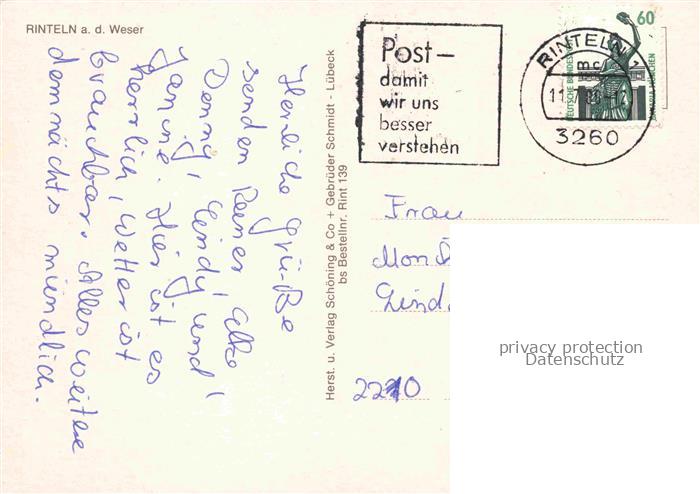 RINTELN a. d. Weser
Herzliche Grüße
senden Reiner, Elke,
Denny, Cindy und
Janine. Hier ist es
herrlich, Wetter ist
brauchbar. Alles weitere
demnächts mündlich.
Herst. u. Verlag Schöning & Co + Gebrüder Schmidt - Lübeck
bs Bestellnr. Rint 139
Post –
damit
wir uns
besser
verstehen
RINTELN 1
mc
3260
60
DEUTSCHE BUNDES
Frau
2210
privacy protection
Datenschutz